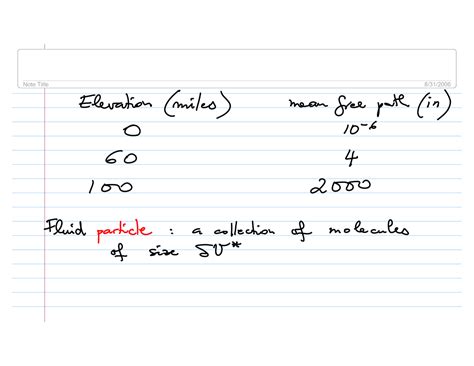 Note Title
8/31/2008
Elevation (miles) mean free path (in)
0 10⁻⁶
60 4
100 2000
Fluid particle : a collection of molecules
of size δV*